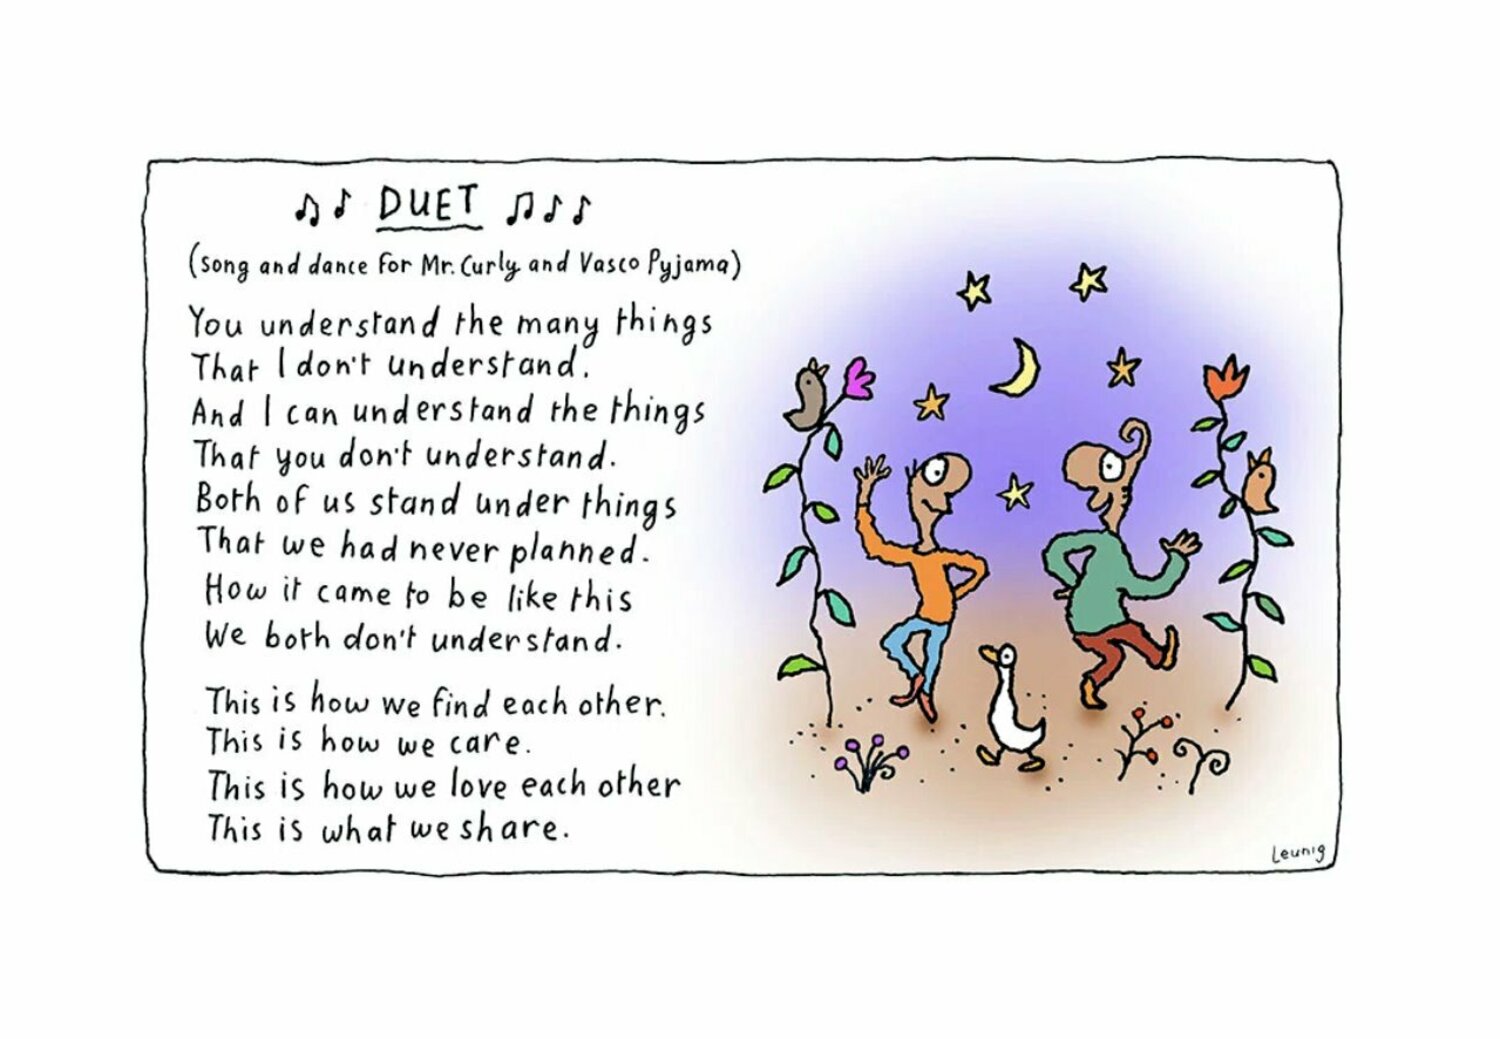 DUET
(song and dance for Mr. Curly and Vasco Pyjama)
You understand the many things
That I don't understand.
And I can understand the things
That you don't understand.
Both of us stand under things
That we had never planned.
How it came to be like this
We both don't understand.
This is how we find each other.
This is how we care.
This is how we love each other
This is what we share.
Leunig